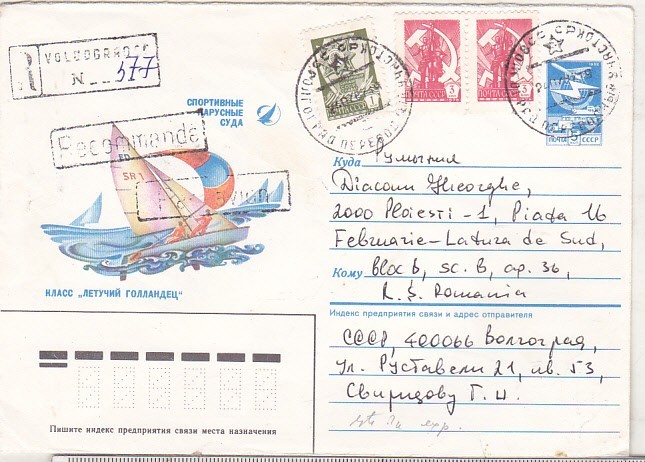 VOLGOGRAD
R
N 577
СПОРТИВНЫЕ
ПАРУСНЫЕ
СУДА
Recommandé
SR 1
Par avion
КЛАСС „ЛЕТУЧИЙ ГОЛЛАНДЕЦ”
1
ПОЧТА СССР 3
ПОЧТА СССР 3
ПОЧТА СССР
Куда Румыния
Diaconu Gheorghe,
2000 Ploiesti-1, Piata 16
Februarie-Latura de Sud,
Кому bloc b, sc. B, ap. 36,
R. S. Romania
Индекс предприятия связи и адрес отправителя
СССР, 400066 Волгоград,
ул. Руставели 21, кв. 53,
Свиридову Г. И.
Пишите индекс предприятия связи места назначения